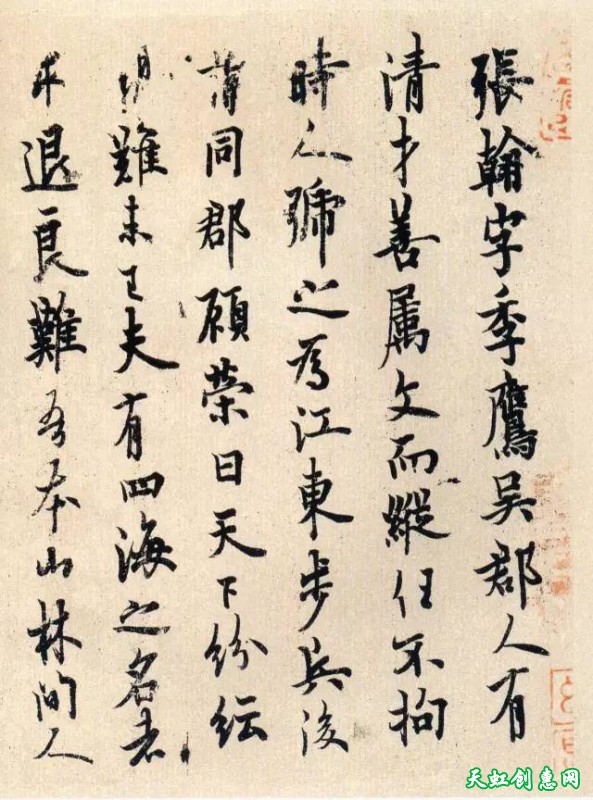 張翰字季鷹吳郡人有
清才善属文而縱任不拘
時人號之為江東步兵後
同郡顧榮曰天下紛紜
難未已夫有四海之名者
求退良難吾本山林間人
天虹创惠网